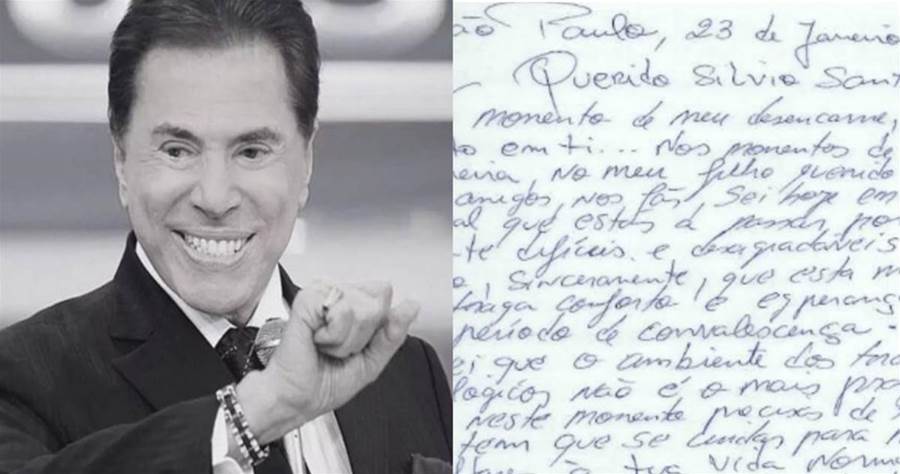 ão Paulo, 23 de Janeiro
Querido Silvio Sant
momento de meu desencarne,
em ti... Nos momentos de
no meu filho querido
amigos, nos fãs, sei hoje em
al que estás a passar por
te difíceis e desagradáveis
, sinceramente, que esta m
traga conforto e esperanç
período de convalescença -
ei que o ambiente dos
lógicos não é o mais
neste momento precisas de
tem que se cuidar para
a tua vida norma